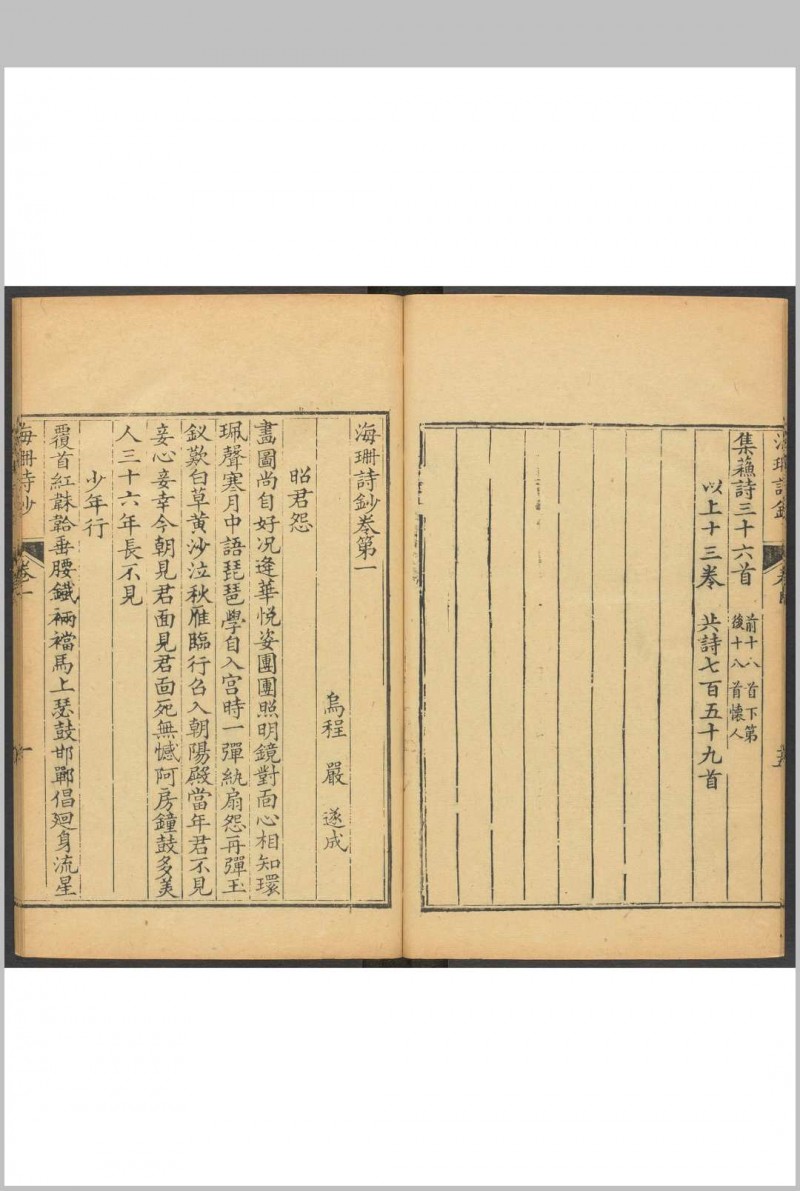 海珊詩鈔
集蘓詩三十六首
前十八首下第
後十八首懷人
以上十三卷 共詩七百五十九首
海珊詩鈔卷第一
烏程 嚴 遂成
昭君怨
畵圖尚自好况逢華悅姿團團照明鏡對面心相知環
珮聲寒月中語琵琶學自入宮時一彈紈扇怨再彈玉
釵歎白草黃沙泣秋雁臨行召入朝陽殿當年君不見
妾心妾幸今朝見君面見君面死無憾阿房鐘鼓多美
人三十六年長不見
少年行
覆首紅韎韐垂腰鐵裲襠馬上瑟鼓邯鄲倡廻身流星
海珊詩鈔
卷一
一